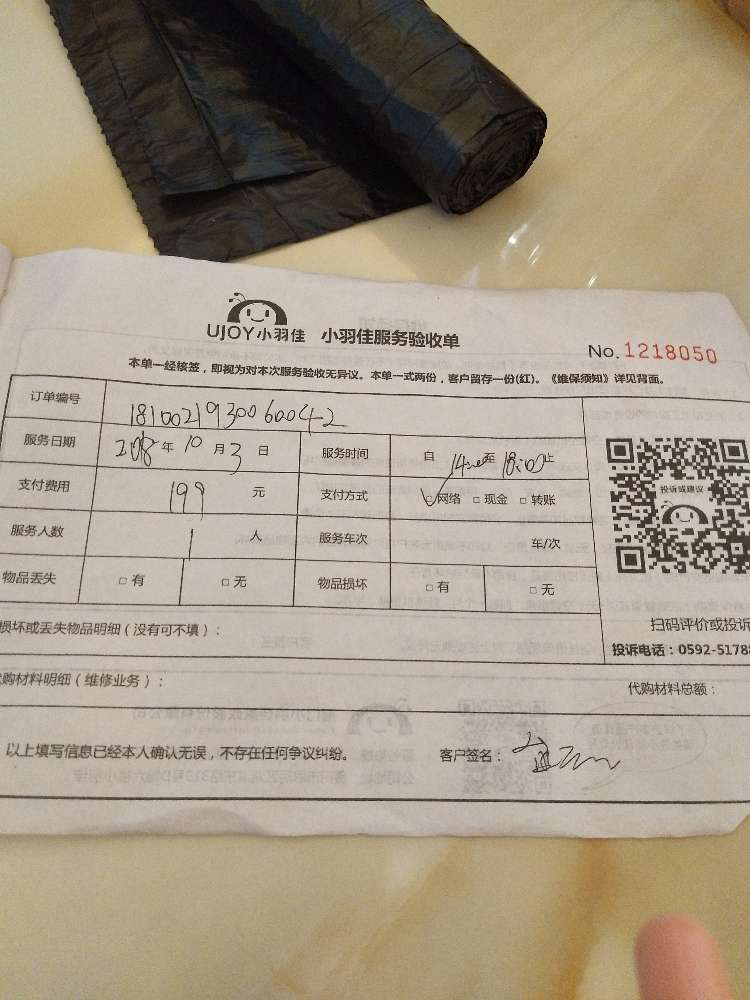 UJOY小羽佳 小羽佳服务验收单
No.1218050
本单一经核签，即视为对本次服务验收无异议。本单一式两份，客户留存一份(红)。《维保须知》详见背面。
订单编号 181002193006004-2
服务日期 2018年10月3日 服务时间 自14:00至18:00止
支付费用 199元 支付方式 网络 □现金 □转账
服务人数 1人 服务车次 车/次
物品丢失 □有 □无 物品损坏 □有 □无
投诉或建议
扫码评价或投诉
投诉电话：0592-51788
损坏或丢失物品明细（没有可不填）：
代购材料明细（维修业务）： 代购材料总额：
以上填写信息已经本人确认无误，不存在任何争议纠纷。 客户签名：